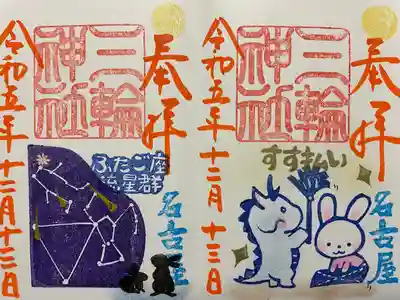 奉拝
三輪
神社
ふたご座
流星群
名古屋
令和五年十二月十三日
奉拝
三輪
神社
すす払い
名古屋
令和五年十二月十三日